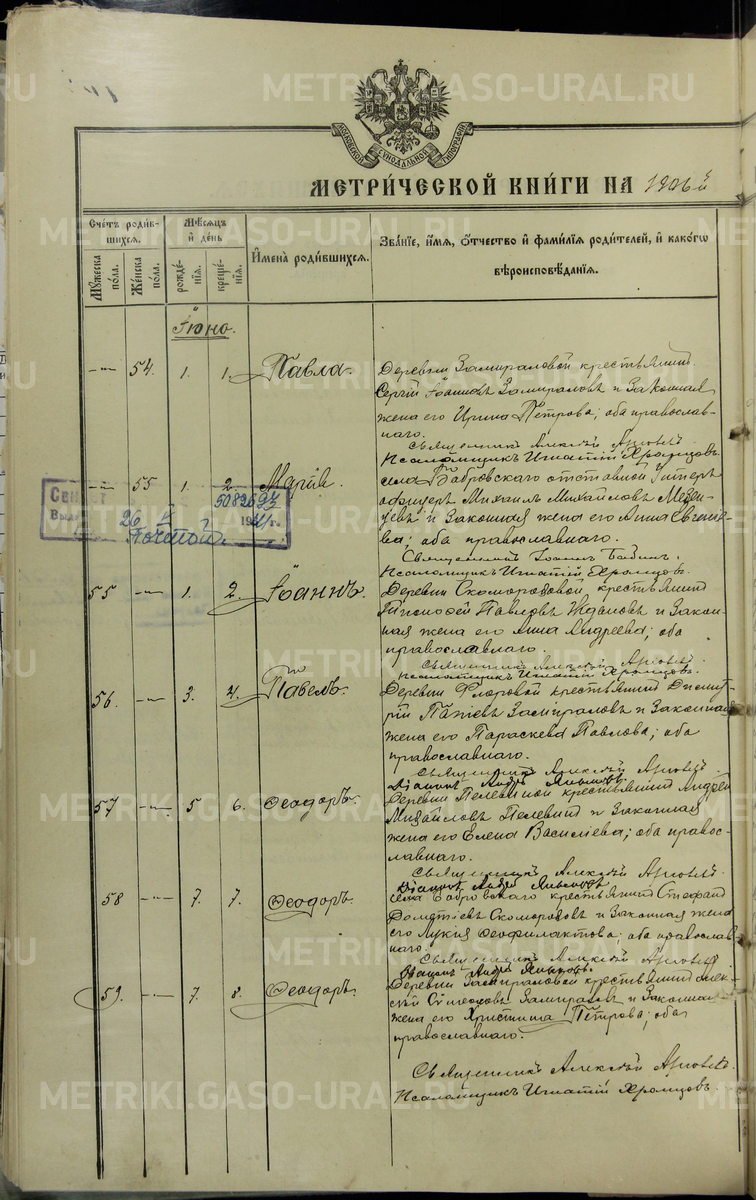 METRIKI.GASO-URAL.RU
МОСКОВСКОЙ СѴНОДАЛЬНОЙ ТИПОГРАФІИ
МЕТРИ́ЧЕСКОЙ КНИ́ГИ НА 1906й
Сче́тъ роди́вшихся.
Мѣ́сяцъ и҆ де́нь
Му́жеска по́ла.
Же́нска по́ла.
рожде́нїя.
креще́нїя.
И҆мена̀ роди́вшихся.
Зва́нїе, и҆́мя, ѻ҆́тчество и҆ фами́лїя роди́телей, и҆ како́гѡ
вѣроисповѣ́данїя.
Іюнь.
54. 1. 1. Павла.
Деревни Замираловой крестьянинъ
Сергій Іоанновъ Замираловъ и законная
жена его Ирина Петрова; оба православ-
наго.
Священникъ Алексій
Псаломщикъ Игнатій Хромцовъ.
55 1. 2. Марія.
села Бобровскаго отставной унтеръ
офицеръ Михаилъ Михайловъ
и законная жена его Анна Евгеніе-
ва; оба православнаго.
Священникъ Іоаннъ
Псаломщикъ Игнатій Хромцовъ.
50826
26 Почтой 1941 г.
55 1. 2. Іоаннъ.
Деревни Скомороховой, крестьянинъ
Тимофей Павловъ Ждановъ и закон-
ная жена его Анна Андреева; оба
православнаго.
Священникъ Алексій
Псаломщикъ Игнатій Хромцовъ.
56. 3. 4. Павелъ.
Деревни Фроровой крестьянинъ Димит-
рій Замираловъ и законная
жена его Параскева Павлова; оба
православнаго.
Священникъ Алексій
Діаконъ Андрей
57 5 6. Ѳеодоръ.
Деревни Пелевиной крестьянинъ Андрей
Михайловъ Пелевинъ и законная
жена его Елена Василіева; оба правос-
лавнаго.
Священникъ Алексій
Діаконъ Андрей
58 7. 7. Ѳеодоръ.
села Бобровскаго крестьянинъ Стефанъ
Дометіевъ Скомороховъ и законная жена
его Лукія Ѳеофилактова; оба православ-
наго.
Священникъ Алексій
Діаконъ Андрей
59. 7. 8. Ѳеодоръ.
Деревни Замираловой крестьянинъ Алек-
сій Симеоновъ Замираловъ и законная
жена его Христина Петрова; оба
православнаго.
Священникъ Алексій
Псаломщикъ Игнатій Хромцовъ.